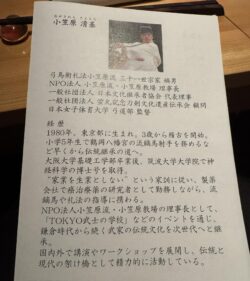 おがさわら きよもと
小笠原 清基
弓馬術礼法小笠原流 三十一世宗家 嫡男
NPO法人 小笠原流・小笠原教場 理事長
一般社団法人 日本文化継承者協会 代表理事
一般社団法人 蛍丸記念刀剣文化遺産伝承会 顧問
日本女子体育大学 弓道部 監督
経 歴
1980年、東京都に生まれ。3歳から稽古を始め、
小学5年生で鶴岡八幡宮の流鏑馬射手を務めるな
ど早くから伝統継承の道へ。
大阪大学基礎工学部卒業後、筑波大学大学院で神
経科学の博士号を取得。
“家業を生業としない”という家訓に従い、製薬
会社で癌治療薬の研究者として勤務しながら、流
鏑馬や礼法の指導に携わる。
NPO法人小笠原流・小笠原教場の理事長として、
「TOKYO武士の学校」などのイベントを通じ、
鎌倉時代から続く武家の伝統文化を次世代へと継
承。
国内外で講演やワークショップを展開し、伝統と
現代の架け橋として精力的に活動している。